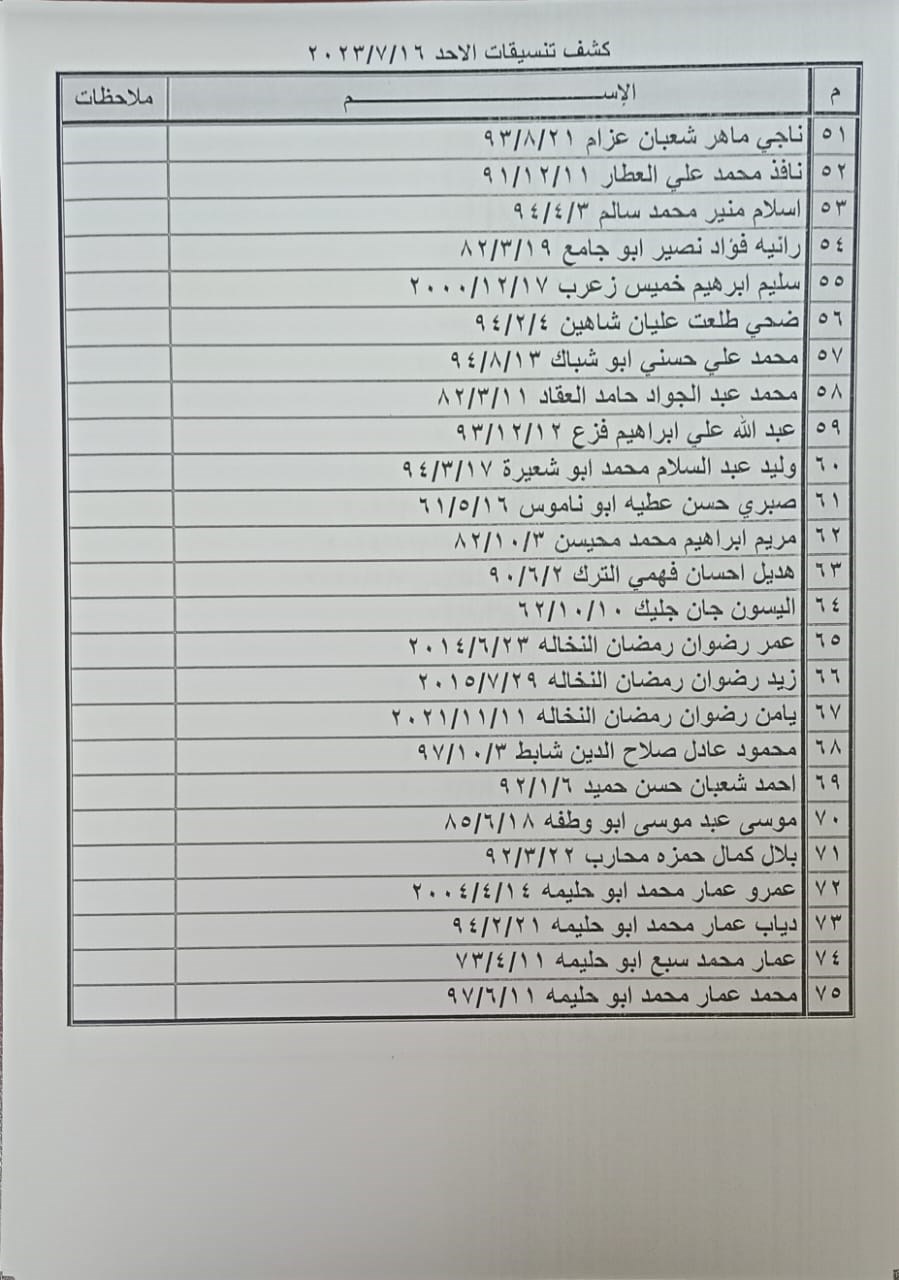 كشف تنسيقات الاحد ٢٠٢٣/٧/١٦
م الإســـــــــم ملاحظات
٥١ ناجي ماهر شعبان عزام ٩٣/٨/٢١
٥٢ نافذ محمد علي العطار ٩١/١٢/١١
٥٣ اسلام منير محمد سالم ٩٤/٤/٣
٥٤ رانيه فؤاد نصير ابو جامع ٨٢/٣/١٩
٥٥ سليم ابرهيم خميس زعرب ٢٠٠٠/١٢/١٧
٥٦ ضحي طلعت عليان شاهين ٩٤/٢/٤
٥٧ محمد علي حسني ابو شباك ٩٤/٨/١٣
٥٨ محمد عبد الجواد حامد العقاد ٨٢/٣/١١
٥٩ عبد الله علي ابراهيم قزع ٩٣/١٢/١٢
٦٠ وليد عبد السلام محمد ابو شعيرة ٩٤/٣/١٧
٦١ صبري حسن عطيه ابو ناموس ٦١/٥/١٦
٦٢ مريم ابراهيم محمد محيسن ٨٢/١٠/٣
٦٣ هديل احسان فهمي الترك ٩٠/٦/٢
٦٤ اليسون جان جليك ٦٢/١٠/١٠
٦٥ عمر رضوان رمضان النخاله ٢٠١٤/٦/٢٣
٦٦ زيد رضوان رمضان النخاله ٢٠١٥/٧/٢٩
٦٧ يامن رضوان رمضان النخاله ٢٠٢١/١١/١١
٦٨ محمود عادل صلاح الدين شابط ٩٧/١٠/٣
٦٩ احمد شعبان حسن حميد ٩٢/١/٦
٧٠ موسى عبد موسى ابو وطفه ٨٥/٦/١٨
٧١ بلال كمال حمزه محارب ٩٢/٣/٢٢
٧٢ عمرو عمار محمد ابو حليمه ٢٠٠٤/٤/١٤
٧٣ دياب عمار محمد ابو حليمه ٩٤/٢/٢١
٧٤ عمار محمد سبع ابو حليمه ٧٣/٤/١١
٧٥ محمد عمار محمد ابو حليمه ٩٧/٦/١١